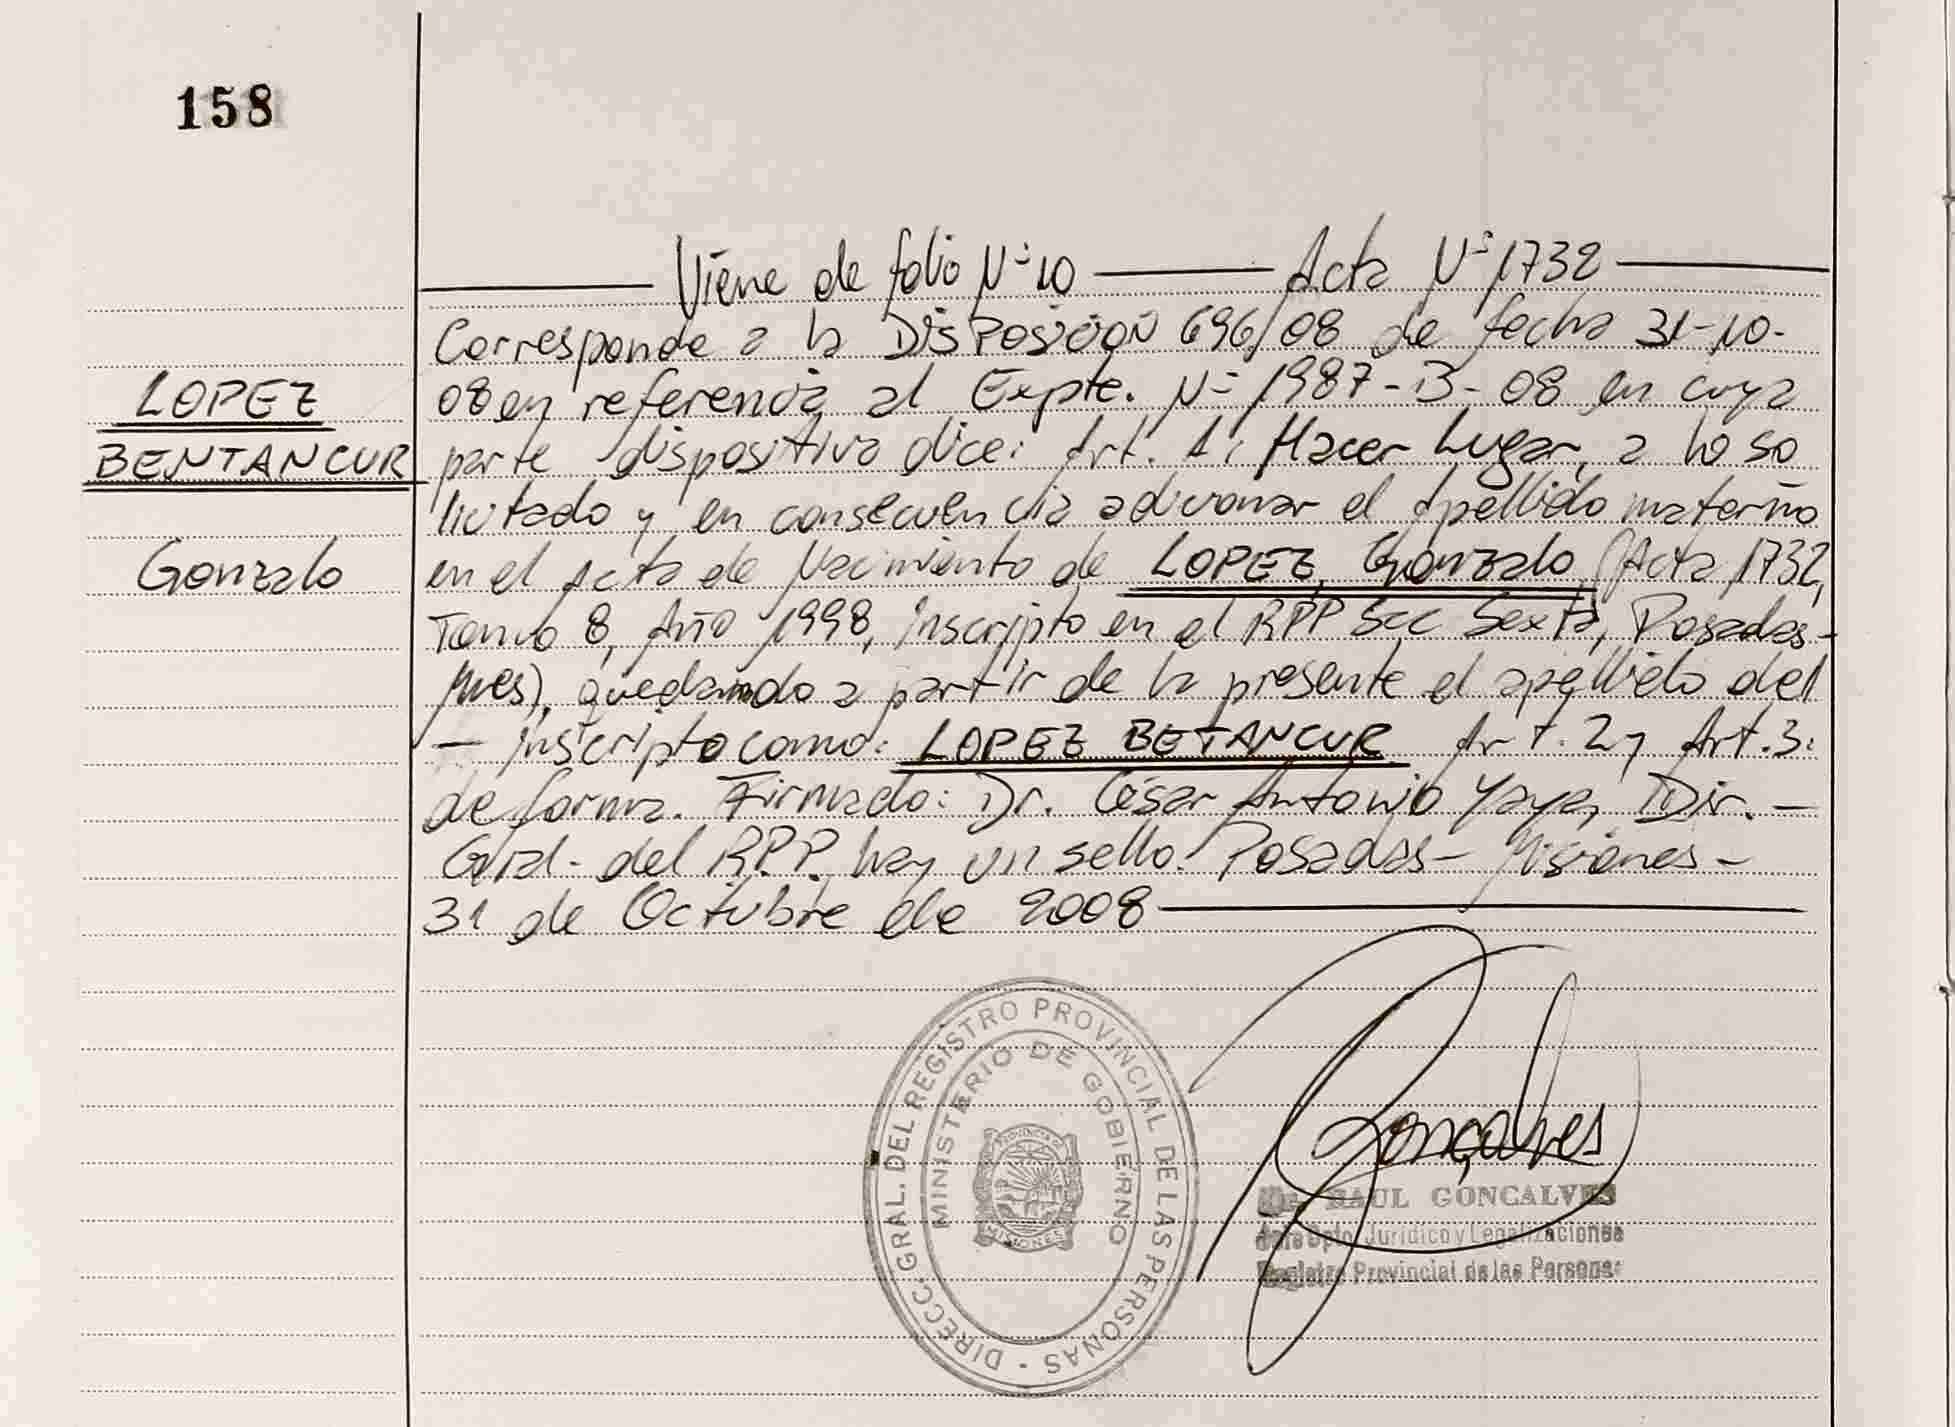 158
Viene de folio Nº 10 Acta Nº 1732
Corresponde a la DISPOSICION 696/08 de fecha 31-10-
LOPEZ
08 en referencia al Expte. Nº 1987-B-08 en cuya
BENTANCUR
parte dispositiva dice: Art. 1: Hacer Lugar, a lo so
licitado y en consecuencia adicionar el Apellido materno
Gonzalo
en el Acta de Nacimiento de LOPEZ, Gonzalo (Acta 1732,
Tomo 8, Año 1998, Inscripto en el RPP Sec Sexta, Posadas-
Mnes), quedando a partir de la presente el apellido del
— Inscripto como: LOPEZ BETANCUR Art. 2 y Art. 3:
de forma. Firmado: Dr. César Antonio Yaya, Dir. —
Gral. del R.P.P. hay un sello. Posadas - Misiones -
31 de Octubre de 2008
DIRECC. GRAL. DEL REGISTRO PROVINCIAL DE LAS PERSONAS
MINISTERIO DE GOBIERNO
PROVINCIA DE
MISIONES
Gonçalves
RAUL GONCALVES
Dpto. Jurídico y Legalizaciones
Registro Provincial de las Personas